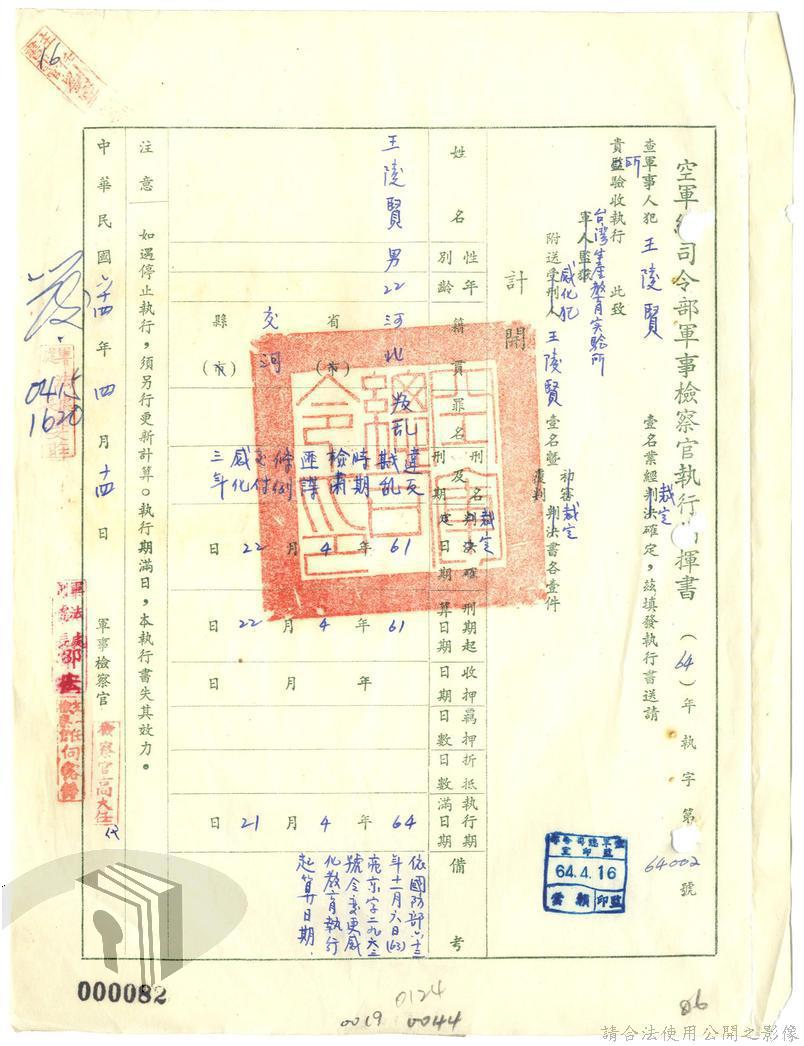 空軍總司令部軍事檢察官執行指揮書 (64)年執字第 64002 號
查軍事人犯 王陵賢 壹名業經裁定判決確定，茲填發執行書送請
貴監所驗收執行 此致
台灣生產教育實驗所
軍人監獄
附送受刑人感化犯 王陵賢 壹名暨初審覆判裁定判決書各壹件
計開
姓名
性別
年齡
籍貫
罪名
刑名及刑期
裁定判決確定日期
刑期起算日期
收押日期
羈押日數
折抵日數
執行期滿日期
備考
王陵賢
男
22
河北省(市)
交河縣(市)
叛亂
違反
戡亂
時期
檢肅
匪諜
條例
交付
感化
三年
61年4月22日
61年4月22日
年 月 日
64年4月21日
依國防部六十三
年十一月六日(63)
亮字二九六三
號令變更感
化教育執行
起算日期.
注意 如遇停止執行，須另行更新計算。執行期滿日，本執行書失其效力。
中華民國六十四年四月十四日 軍事檢察官
檢察官高大任
代
0415
1620
64.4.16
監印
16
000082
0124
0019
0044
86
請合法使用公開之影像